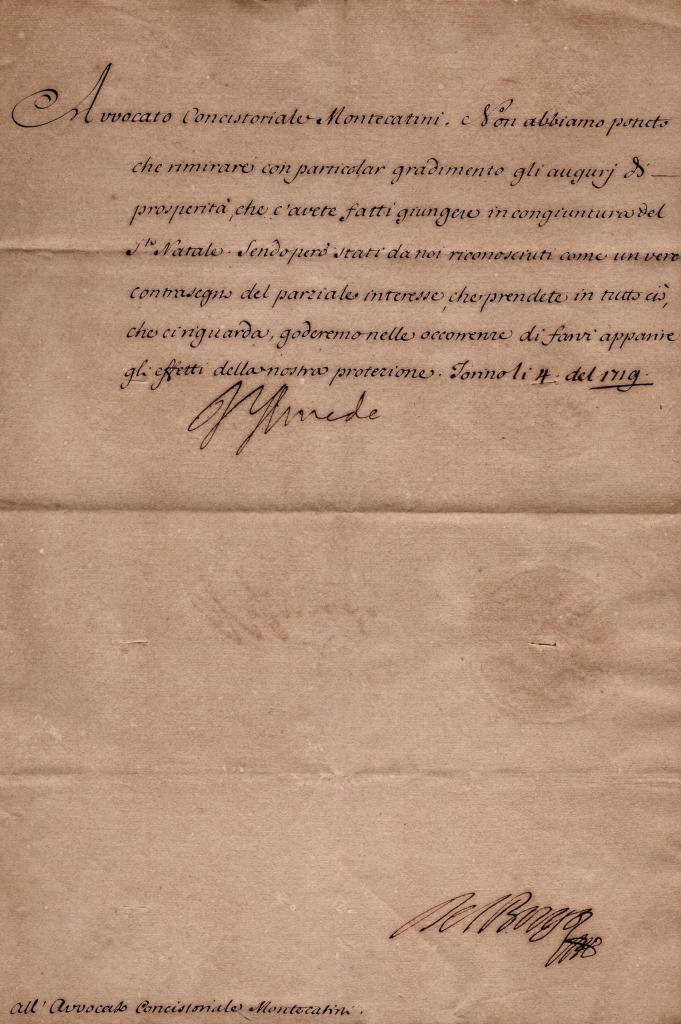 Avvocato Concistoriale Montecatini. Non abbiamo potuto
che rimirare con particolar gradimento gli augurj di
prosperità, che c'avete fatti giungere in congiuntura del
S.to Natale. Sendo però stati da noi riconosciuti come un vero
contrasegno del parziale interesse, che prendete in tutto ciò,
che ci riguarda, goderemo nelle occorrenze di farvi apparire
gli effetti della nostra protezione. Torino li 4. del 1719.
V Amede
Del Borgo
All' Avvocato Concistoriale Montecatini.